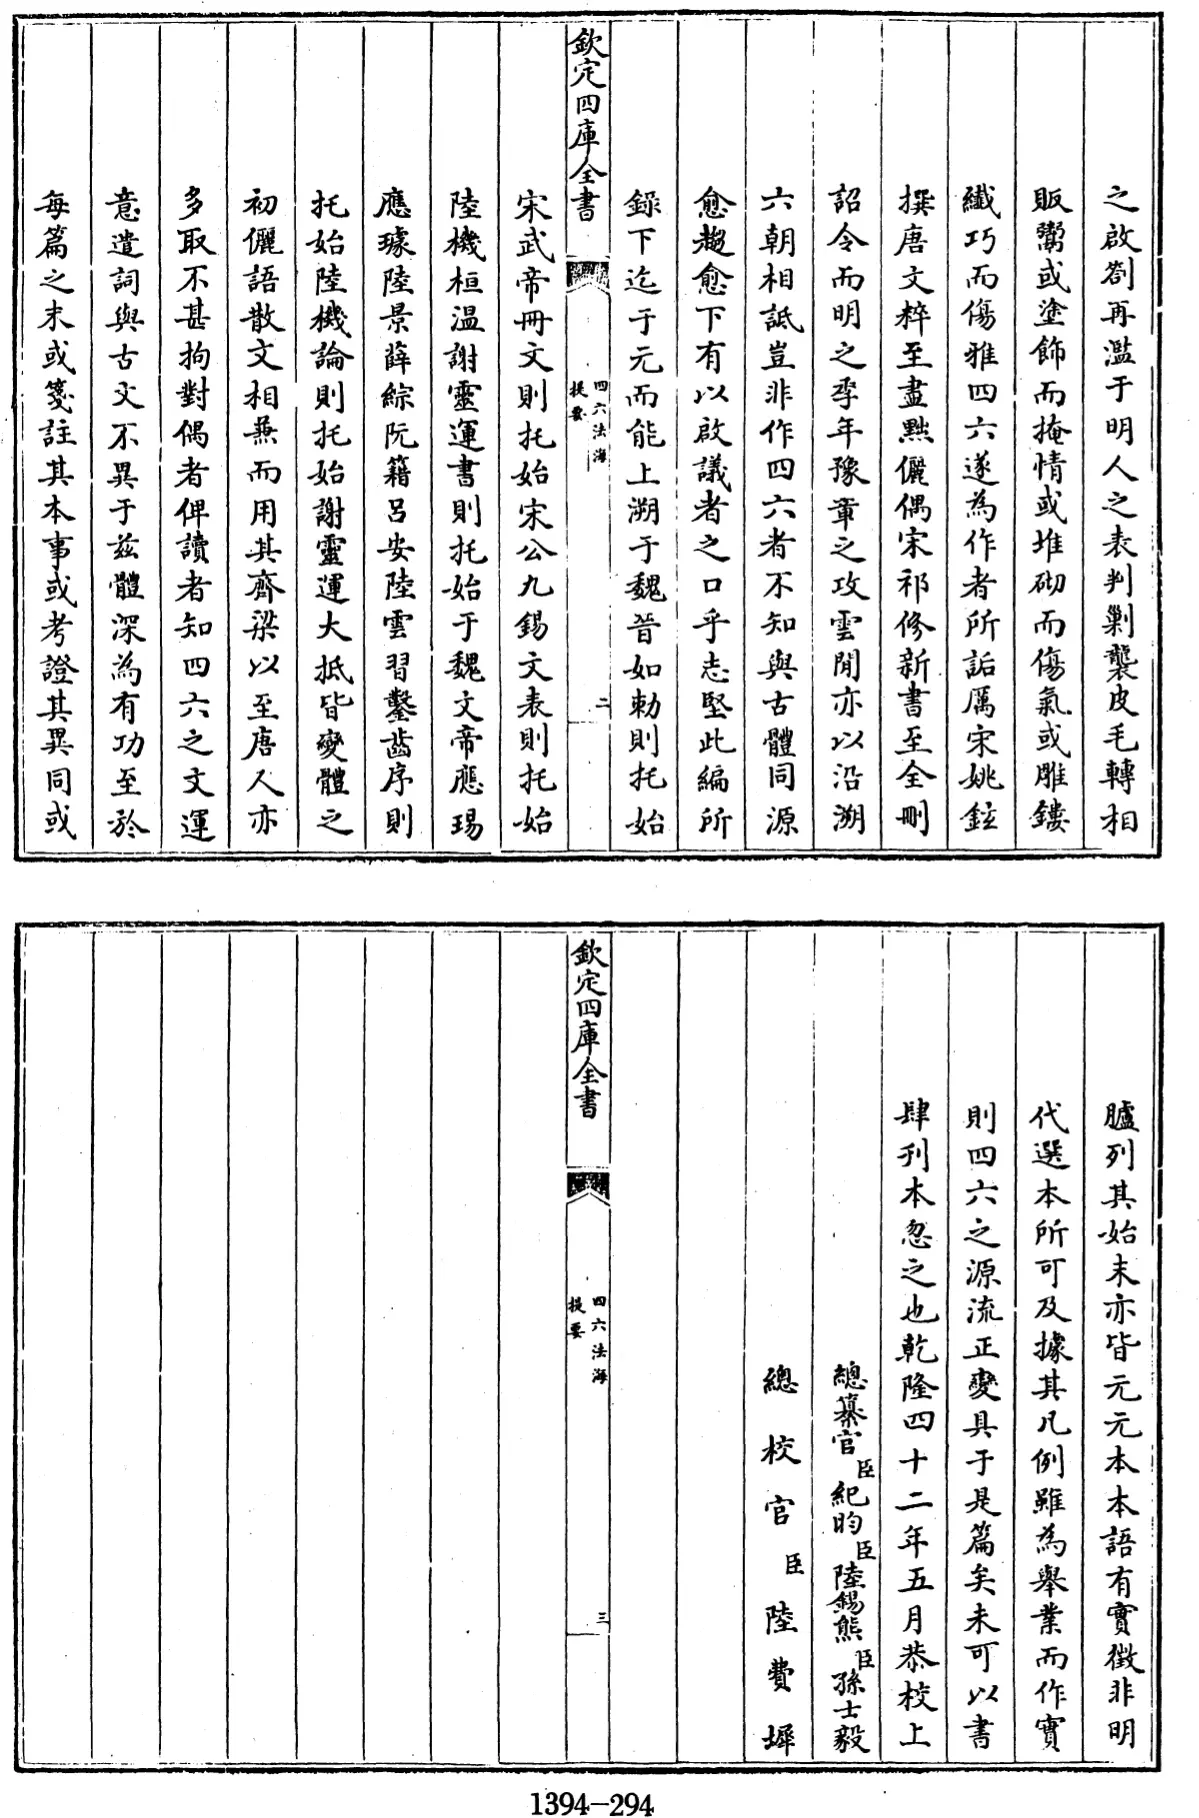 之啟劄再濫于明人之表判剿襲皮毛轉相
販鬻或塗飾而掩情或堆砌而傷氣或雕鏤
纖巧而傷雅四六遂為作者所詬厲宋姚鉉
撰唐文粹至盡黜儷偶宋祁修新書至全刪
詔令而明之季年豫章之攻雲間亦以沿溯
六朝相詆豈非作四六者不知與古體同源
愈趨愈下有以啟議者之口乎志堅此編所
錄下迄于元而能上溯于魏晉如勅則托始
欽定四庫全書
四六法海
提要
二
宋武帝冊文則托始宋公九錫文表則托始
陸機桓溫謝靈運書則托始于魏文帝應瑒
應璩陸景薛綜阮籍呂安陸雲習鑿齒序則
托始陸機論則托始謝靈運大抵皆變體之
初儷語散文相兼而用其齊梁以至唐人亦
多取不甚拘對偶者俾讀者知四六之文運
意遣詞與古文不異于茲體深為有功至於
每篇之末或箋註其本事或考證其異同或
臚列其始末亦皆元元本本語有實徵非明
代選本所可及據其凡例雖為舉業而作實
則四六之源流正變具于是篇矣未可以書
肆刊本忽之也乾隆四十二年五月恭校上
總纂官臣紀昀臣陸錫熊臣孫士毅
總校官臣陸費墀
欽定四庫全書
四六法海
提要
三
1394-294